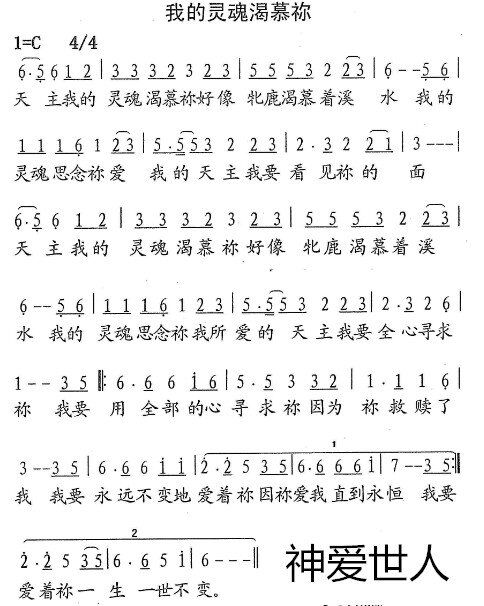 我的灵魂渴慕祢
1=C 4/4
6·5 6 1 2 | 3 3 3 2 3 2 3 | 5 5 5 3 2 2 3 | 6 - - 5 6 |
天主我的 灵魂渴慕祢好像 牝鹿渴慕着溪 水 我的
1 1 1 6 1 2 3 | 5·5 5 3 2 2 3 | 2·3 2 2 1 | 3 - - - |
灵魂思念祢爱 我的天主我要看见祢的 面
6·5 6 1 2 | 3 3 3 2 3 2 3 | 5 5 5 3 2 2 3 |
天主我的 灵魂渴慕祢好像 牝鹿渴慕着溪
6 - - 5 6 | 1 1 1 6 1 2 3 | 5·5 5 3 2 2 3 | 2·3 2 6 |
水 我的 灵魂思念祢我所爱的天主我要全心寻求
1 - - 3 5 ‖: 6·6 6 i 6 | 5·5 3 3 2 | 1·1 1 6 |
祢 我要 用全部的心寻求祢因为 祢救赎了
3 - - 3 5 | 6·6 6 i i | 2·2 5 3 5 | 6·6 6 6 i | 7 - - 3 5 :‖
1
我 我要永远不变地爱着祢因祢爱我直到永恒 我要
2
2·2 5 3 5 | 6·6 5 i | 6 - - - ‖
爱着祢一生 一世不变。
神爱世人